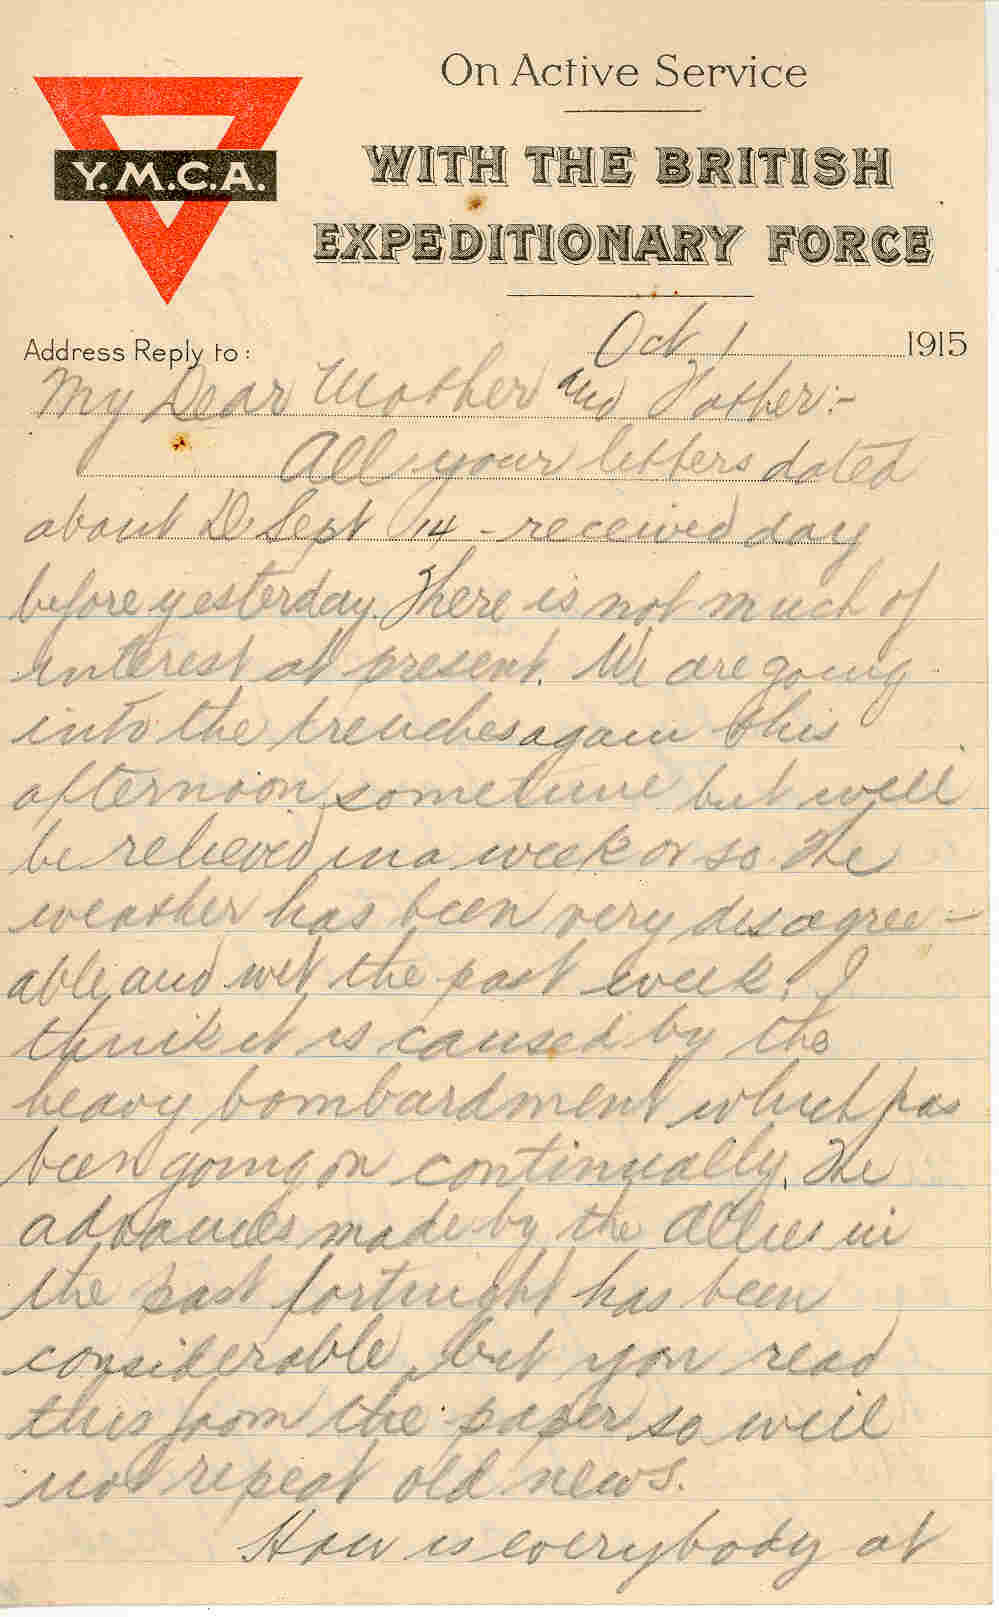 On Active Service
WITH THE BRITISH
EXPEDITIONARY FORCE
Y.M.C.A.
Address Reply to:
Oct 1 1915
My Dear Mother and Father:-
All your letters dated
about Sept 14 - received day
before yesterday. There is not much of
interest at present. We are going
into the trenches again this
afternoon sometime but will
be relieved in a week or so. The
weather has been very disagree-
able and wet the past week. I
think it is caused by the
heavy bombardment which has
been going on continually. The
advances made by the Allies in
the past fortnight has been
considerable, but you read
this from the paper so will
not repeat old news.
How is everybody at